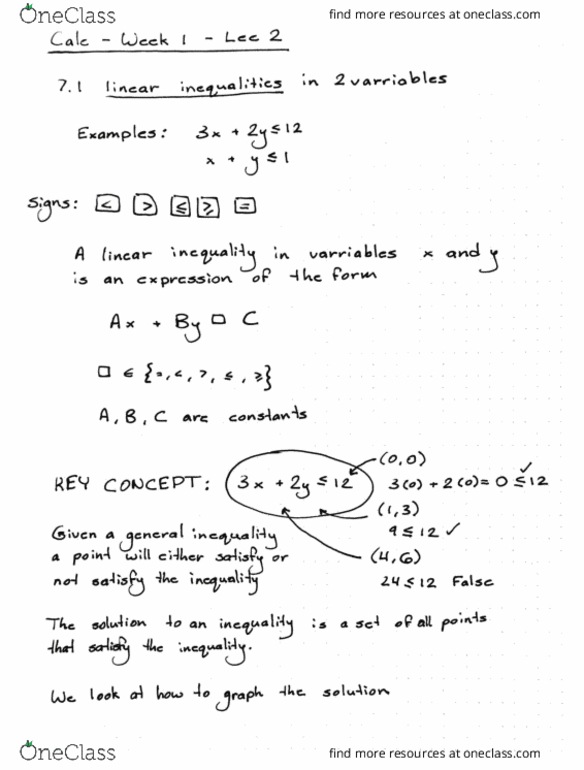 OneClass
find more resources at oneclass.com
Calc - Week 1 - Lec 2
7.1 linear inequalities in 2 varriables
Examples: 3x + 2y ≤ 12
x + y ≤ 1
Signs: < > ≤ ≥ =
A linear inequality in varriables x and y
is an expression of the form
Ax + By □ C
□ ∈ {=, <, >, ≤, ≥}
A, B, C are constants
KEY CONCEPT: 3x + 2y ≤ 12
(0,0)
3(0) + 2(0) = 0 ≤ 12 ✓
(1,3)
9 ≤ 12 ✓
(4,6)
24 ≤ 12 False
Given a general inequality
a point will either satisfy or
not satisfy the inequality
The solution to an inequality is a set of all points
that satisfy the inequality.
We look at how to graph the solution
OneClass
find more resources at oneclass.com